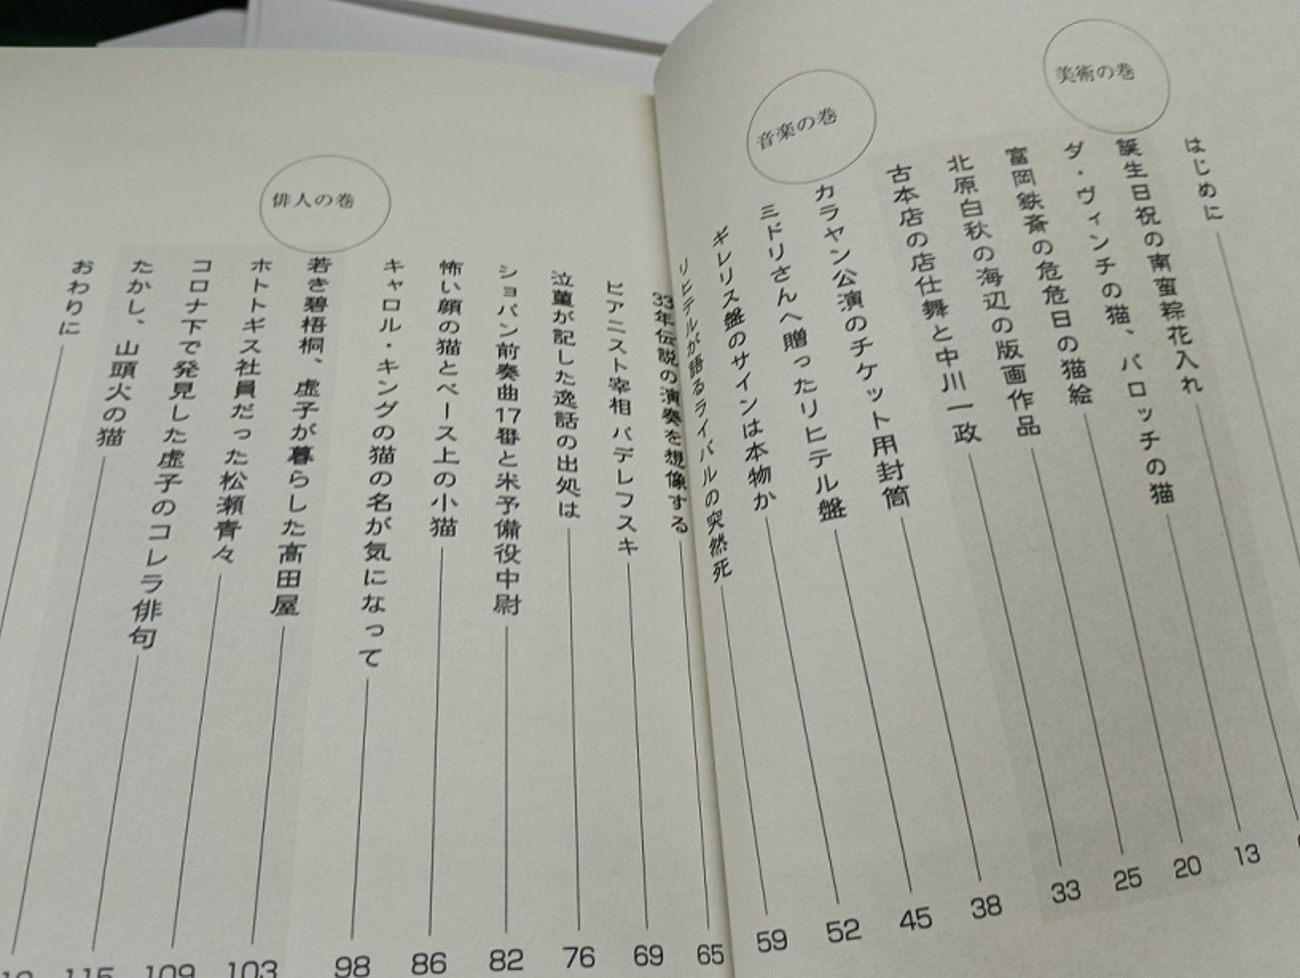 はじめに
美術の巻
誕生日祝の南蛮粽花入れ
ダ・ヴィンチの猫、バロッチの猫 13
富岡鉄斎の危危日の猫絵 20
北原白秋の海辺の版画作品 25
古本店の店仕舞と中川一政 33
音楽の巻
カラヤン公演のチケット用封筒 38
ミドリさんへ贈ったリヒテル盤 45
ギレリス盤のサインは本物か 52
リヒテルが語るライバルの突然死 59
33年伝説の演奏を想像する 65
ピアニスト宰相 パデレフスキ 69
泣菫が記した逸話の出処は 76
ショパン前奏曲17番と米予備役中尉 82
怖い顔の猫とベース上の小猫 86
キャロル・キングの猫の名が気になって 98
俳人の巻
若き碧梧桐、虚子が暮らした高田屋 103
ホトトギス社員だった松瀬青々 109
コロナ下で発見した虚子のコレラ俳句 115
たかし、山頭火の猫
おわりに